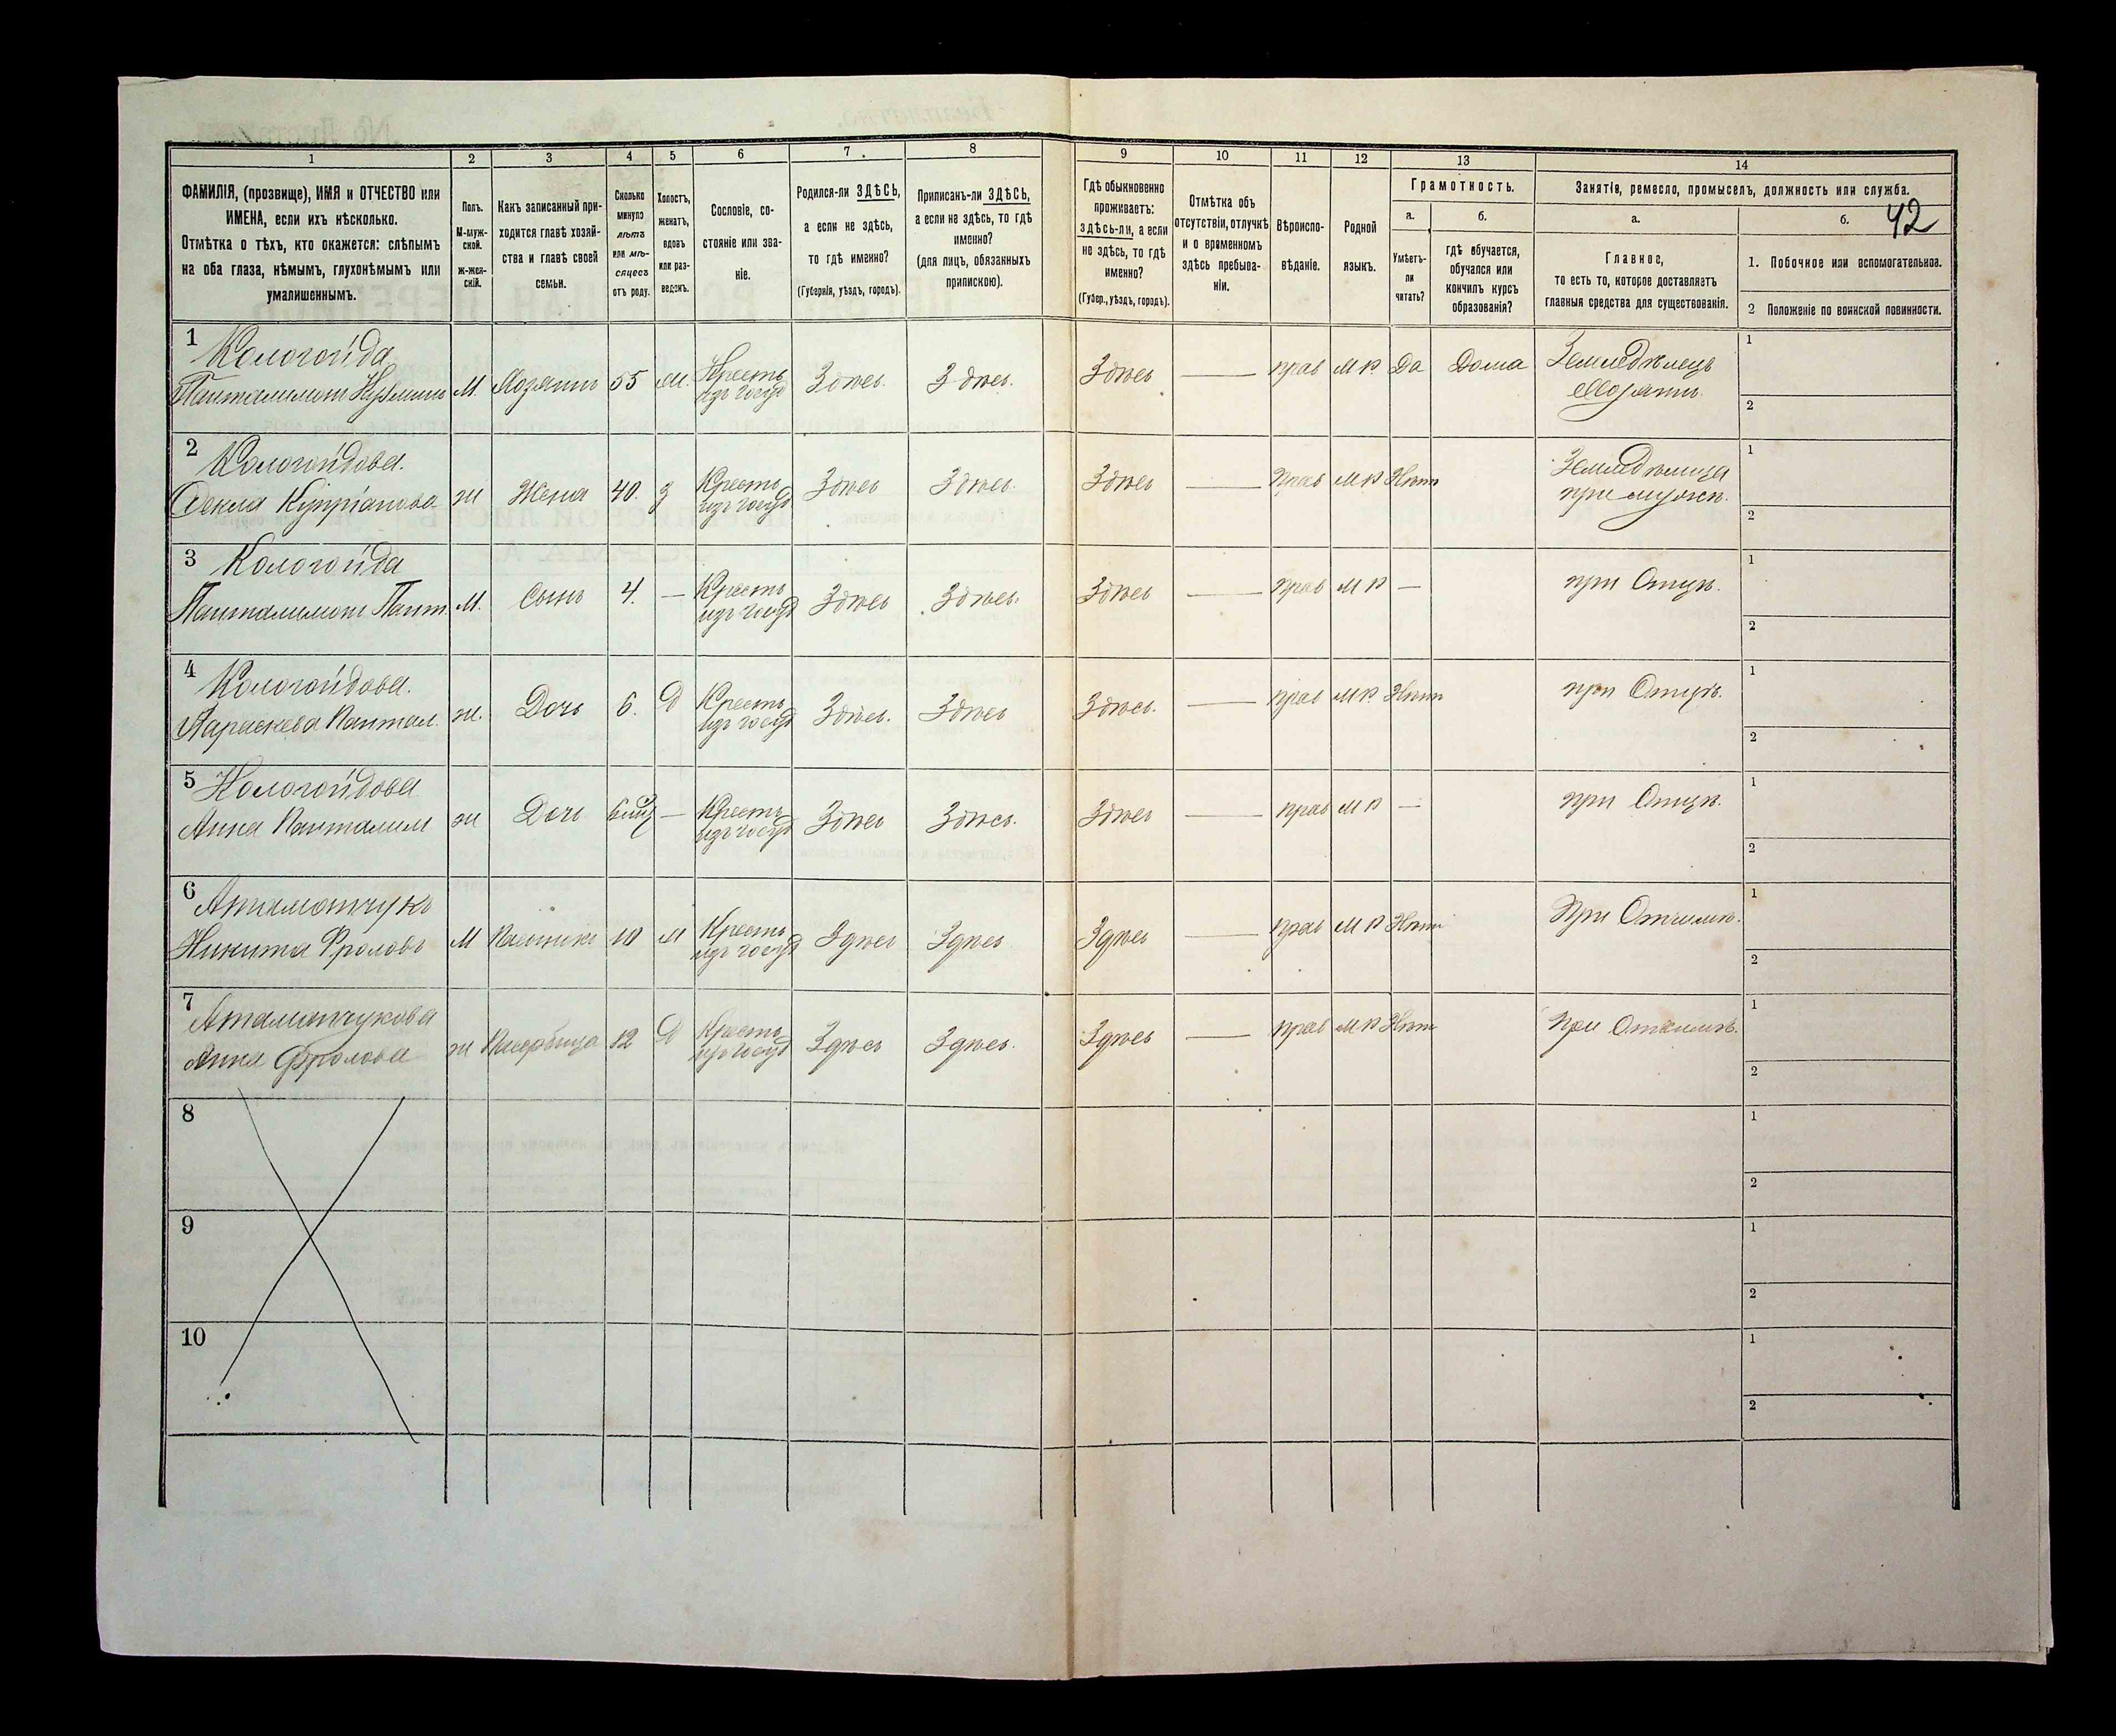 42
1 2 3 4 5 6 7 8 9 10 11 12 13 14
ФАМИЛІЯ, (прозвище), ИМЯ и ОТЧЕСТВО или
ИМЕНА, если ихъ нѣсколько.
Отмѣтка о тѣхъ, кто окажется: слѣпымъ
на оба глаза, нѣмымъ, глухонѣмымъ или
умалишеннымъ.
Полъ.
М-муж-
ской.
ж-жен-
скій.
Какъ записанный при-
ходится главѣ хозяй-
ства и главѣ своей
семьи.
Сколько
минуло
лѣтъ
или мѣ-
сяцевъ
отъ роду.
Холостъ,
женатъ,
вдовъ
или раз-
веденъ.
Сословіе, со-
стояніе или зва-
ніе.
Родился-ли ЗДѢСЬ,
а если не здѣсь,
то гдѣ именно?
(Губернія, уѣздъ, городъ).
Приписанъ-ли ЗДѢСЬ,
а если не здѣсь, то гдѣ
именно?
(для лицъ, обязанныхъ
припискою).
Гдѣ обыкновенно
проживаетъ:
здѣсь-ли, а если
не здѣсь, то гдѣ
именно?
(Губер., уѣздъ, городъ).
Отмѣтка объ
отсутствіи, отлучкѣ
и о временномъ
здѣсь пребыва-
ніи.
Вѣроиспо-
вѣданіе.
Родной
языкъ.
Грамотность.
а.
Умѣетъ-
ли
читать?
б.
гдѣ обучается,
обучался или
кончилъ курсъ
образованія?
Занятіе, ремесло, промыселъ, должность или служба.
а.
Главное,
то есть то, которое доставляетъ
главныя средства для существованія.
б.
1. Побочное или вспомогательное.
2 Положеніе по воинской повинности.
1 Кологойда
Панталимонъ М. Хозяинъ 55 Кресть Здѣсь. Здѣсь. Здѣсь — прав М Р Да Дома Земледѣлецъ
изъ госуд Хозяинъ
1
2
2 Кологойдова.
Фекла Купріанова ж Жена 40. з Кресть Здѣсь Здѣсь. Здѣсь — Прав М Р Нѣтъ Земледѣлица
изъ госуд при мужѣ.
1
2
3 Кологойда
Панталимонъ Пант. М. Сынъ 4. — Кресть Здѣсь Здѣсь. Здѣсь — прав М Р — при Отцѣ.
изъ госуд
1
2
4 Кологойдова.
Параскева Пантал. ж. Дочь 6. Д Кресть Здѣсь. Здѣсь Здѣсь. — прав М Р. Нѣтъ при Отцѣ.
изъ госуд
1
2
5 Кологойдова
Анна Панталим ж Дочь — Кресть Здѣсь Здѣсь. Здѣсь — прав М Р — при Отцѣ.
изъ госуд
1
2
6 Атаманчукъ
Никита Фроловъ М Пасынокъ Кресть Здѣсь Здѣсь Здѣсь — прав М Р Нѣтъ При Отчимѣ.
изъ госуд
1
2
7 Атаманчукова
Анна Фролова ж 12 Д Кресть Здѣсь Здѣсь. Здѣсь — прав М Р Нѣтъ При Отчимѣ.
изъ госуд
1
2
8
1
2
9
1
2
10
1
2